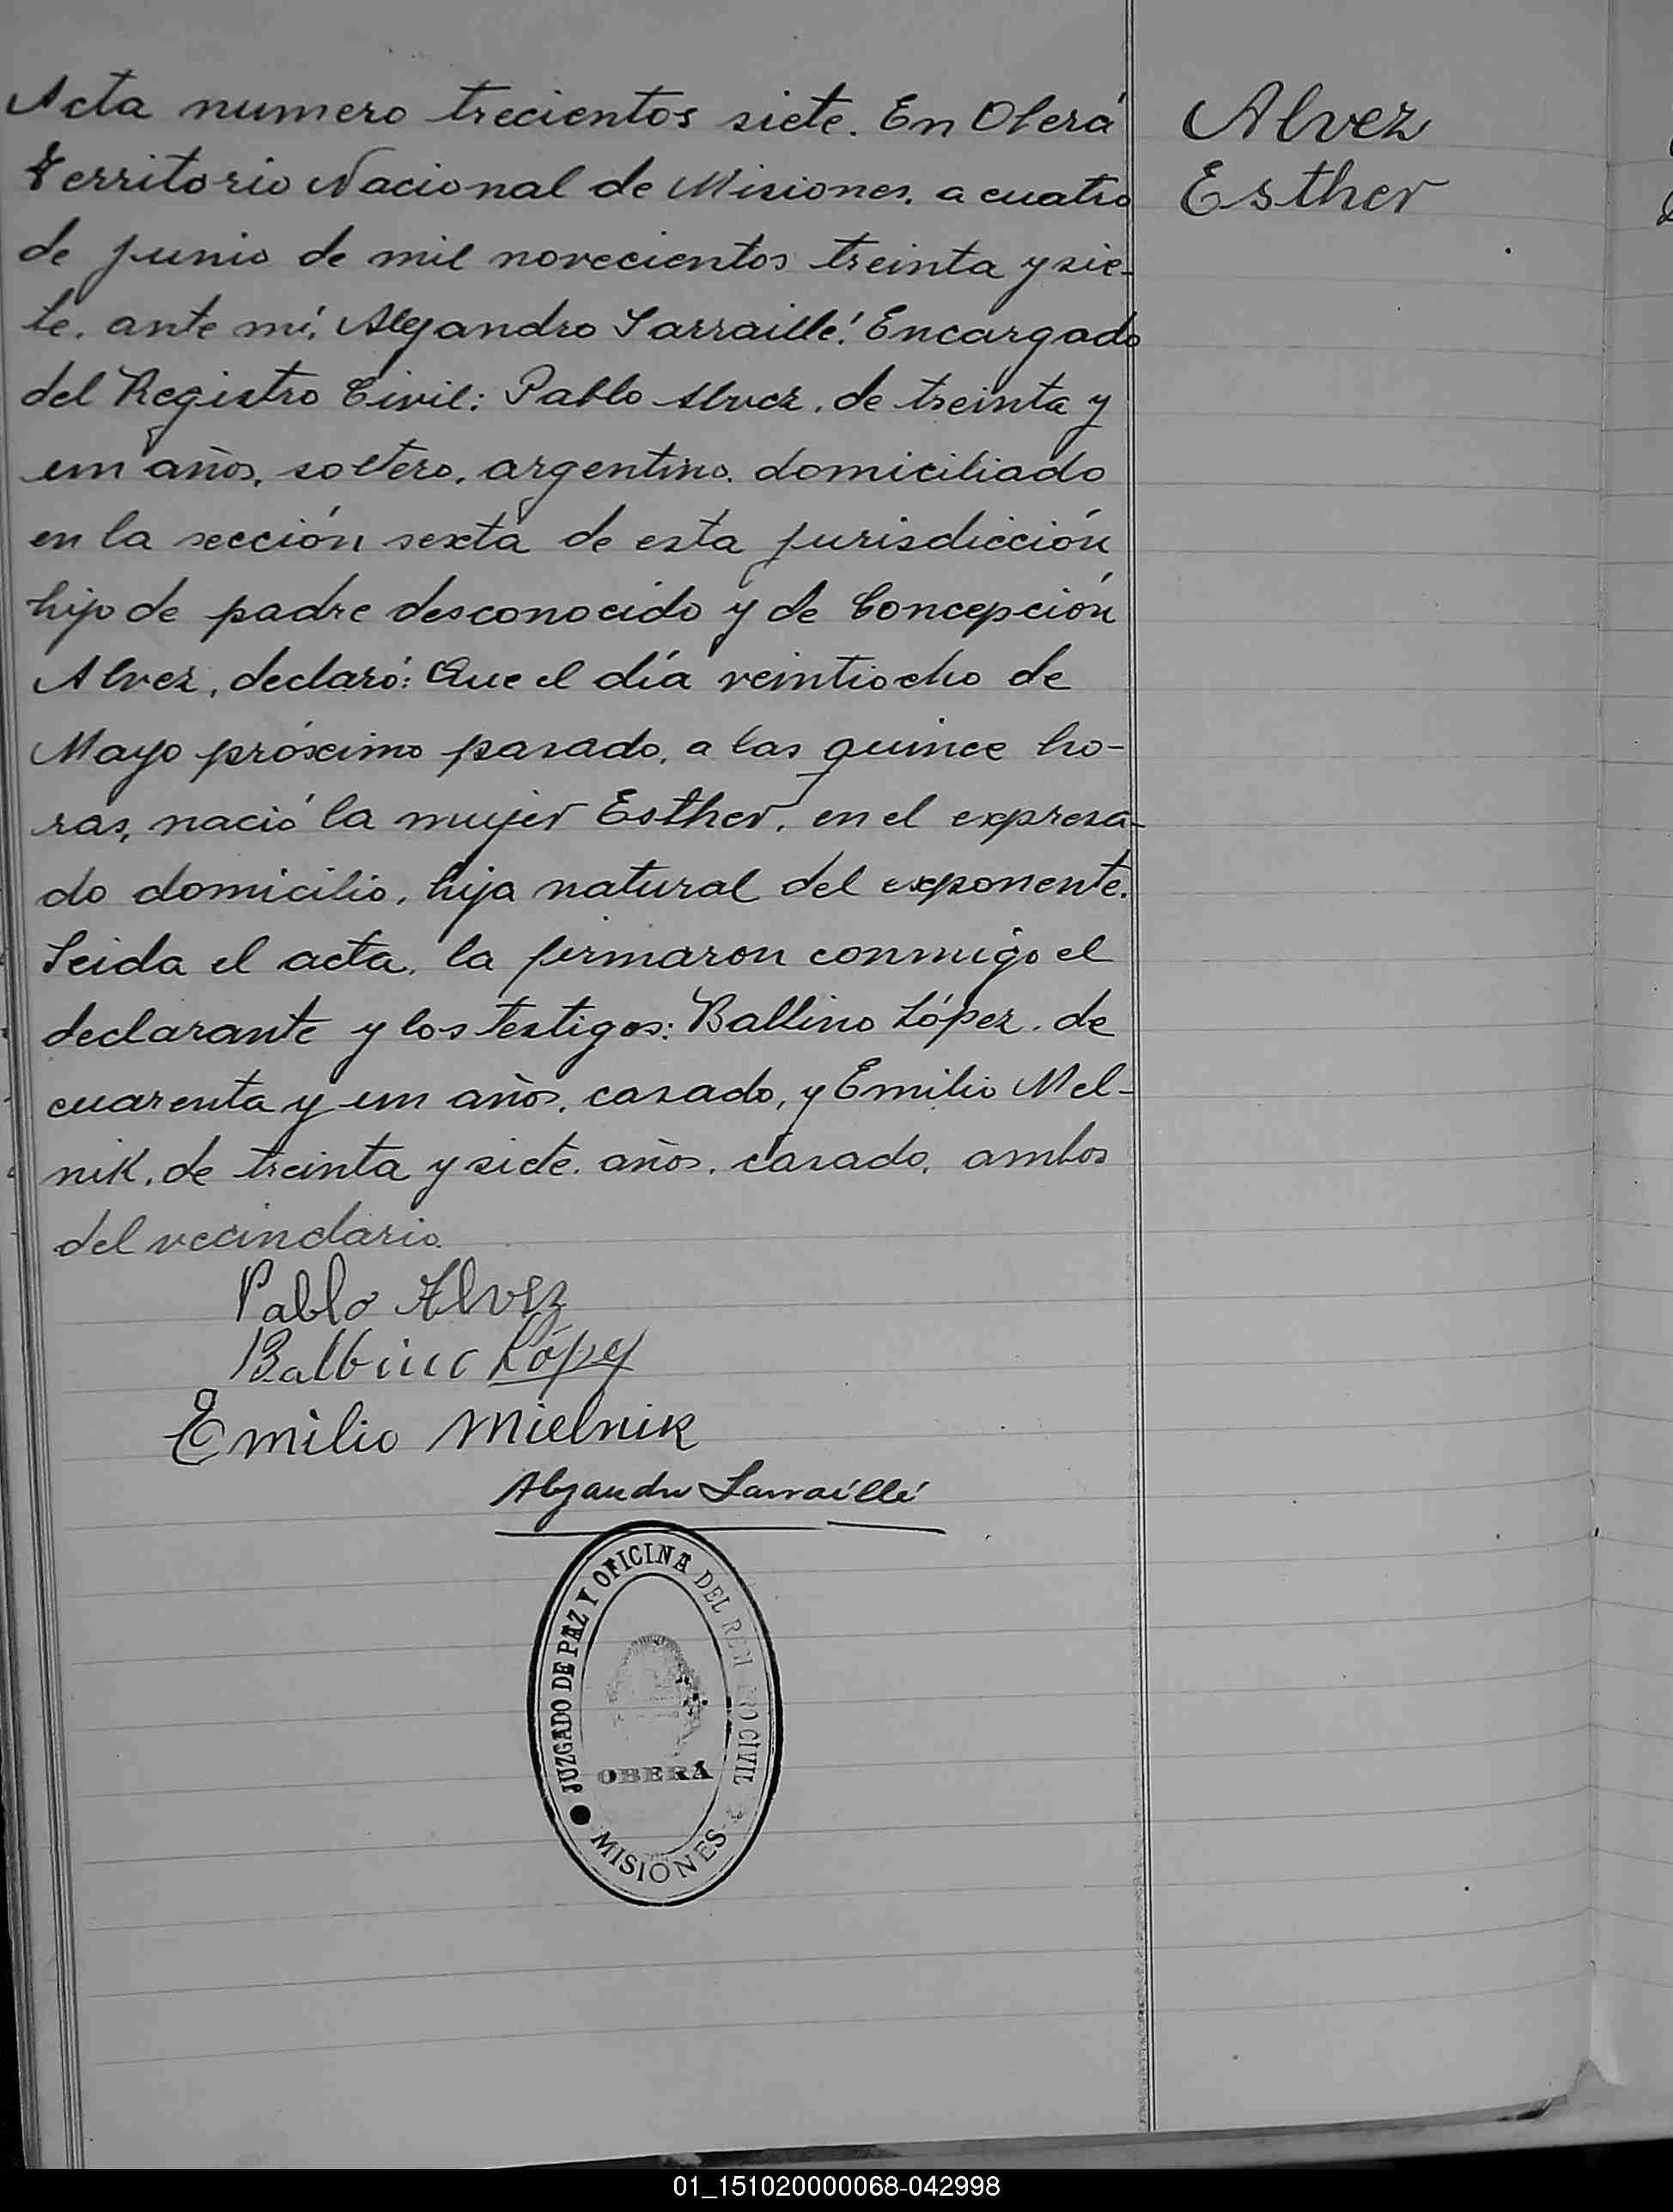 Acta numero trecientos siete. En Oberá
Territorio Nacional de Misiones, a cuatro
de junio de mil novecientos treinta y sie-
te, ante mí, Alejandro Larraillé, Encargado
del Registro Civil: Pablo Alvez, de treinta y
un años, soltero, argentino, domiciliado
en la sección sexta de esta jurisdicción,
hijo de padre desconocido y de Concepción
Alvez, declaró: Que el día veintiocho de
Mayo próximo pasado, a las quince ho-
ras, nació la mujer Esther, en el expresa-
do domicilio, hija natural del exponente.
Leida el acta, la firmaron conmigo el
declarante y los testigos: Balbino López, de
cuarenta y un años, casado, y Emilio Mel-
nik, de treinta y siete años, casado, ambos
del vecindario.
Alvez
Esther
Pablo Alvez
Balbino López
Emilio Mielnik
Alejandro Larraillé
JUZGADO DE PAZ Y OFICINA DEL CIVIL
OBERÁ
MISIONES
01_151020000068-042998